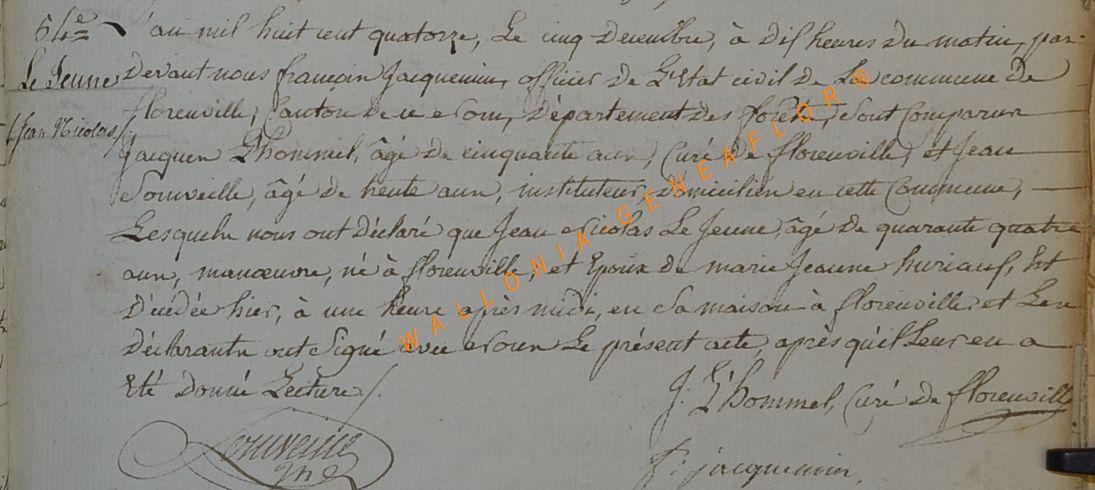 64e L'an mil huit cent quatorze, Le cinq Decembre, à dix heures du matin, par-
Le Jeune devant nous françois Jacquemin, officier de L'Etat civil de La commune de
Jean Nicolas florenville, Canton de département des forêts, Sont Comparus
Jacques L'hommel, âgé de cinquante ans, Curé de florenville, et Jean
âgé de trente ans, instituteur, domiciliés en cette Commune,
Lesquels nous ont déclaré que Jean Nicolas Le Jeune, âgé de quarante quatre
ans, manœuvre, né à florenville, et Epoux de marie Jeanne huriaux, Est
Décédée hier, à une heure après midi, en Sa maison à florenville et Les
Déclarants ont Signé avec Nous Le présent acte, après qu'il Leur en a
Eté donné Lecture /.
J. L'hommel, Curé de florenville
f: jacquemin
WALLONIA GENEAFLOR ®